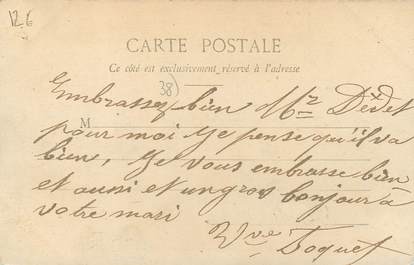 12 €
CARTE POSTALE
Ce côté est exclusivement réservé à l'adresse
38)
Embrassez bien Mr Dédet
M
pour moi je pense qu'il va
bien, Je vous embrasse bien
et aussi et un gros bonjour à
votre mari
Vve Toquet